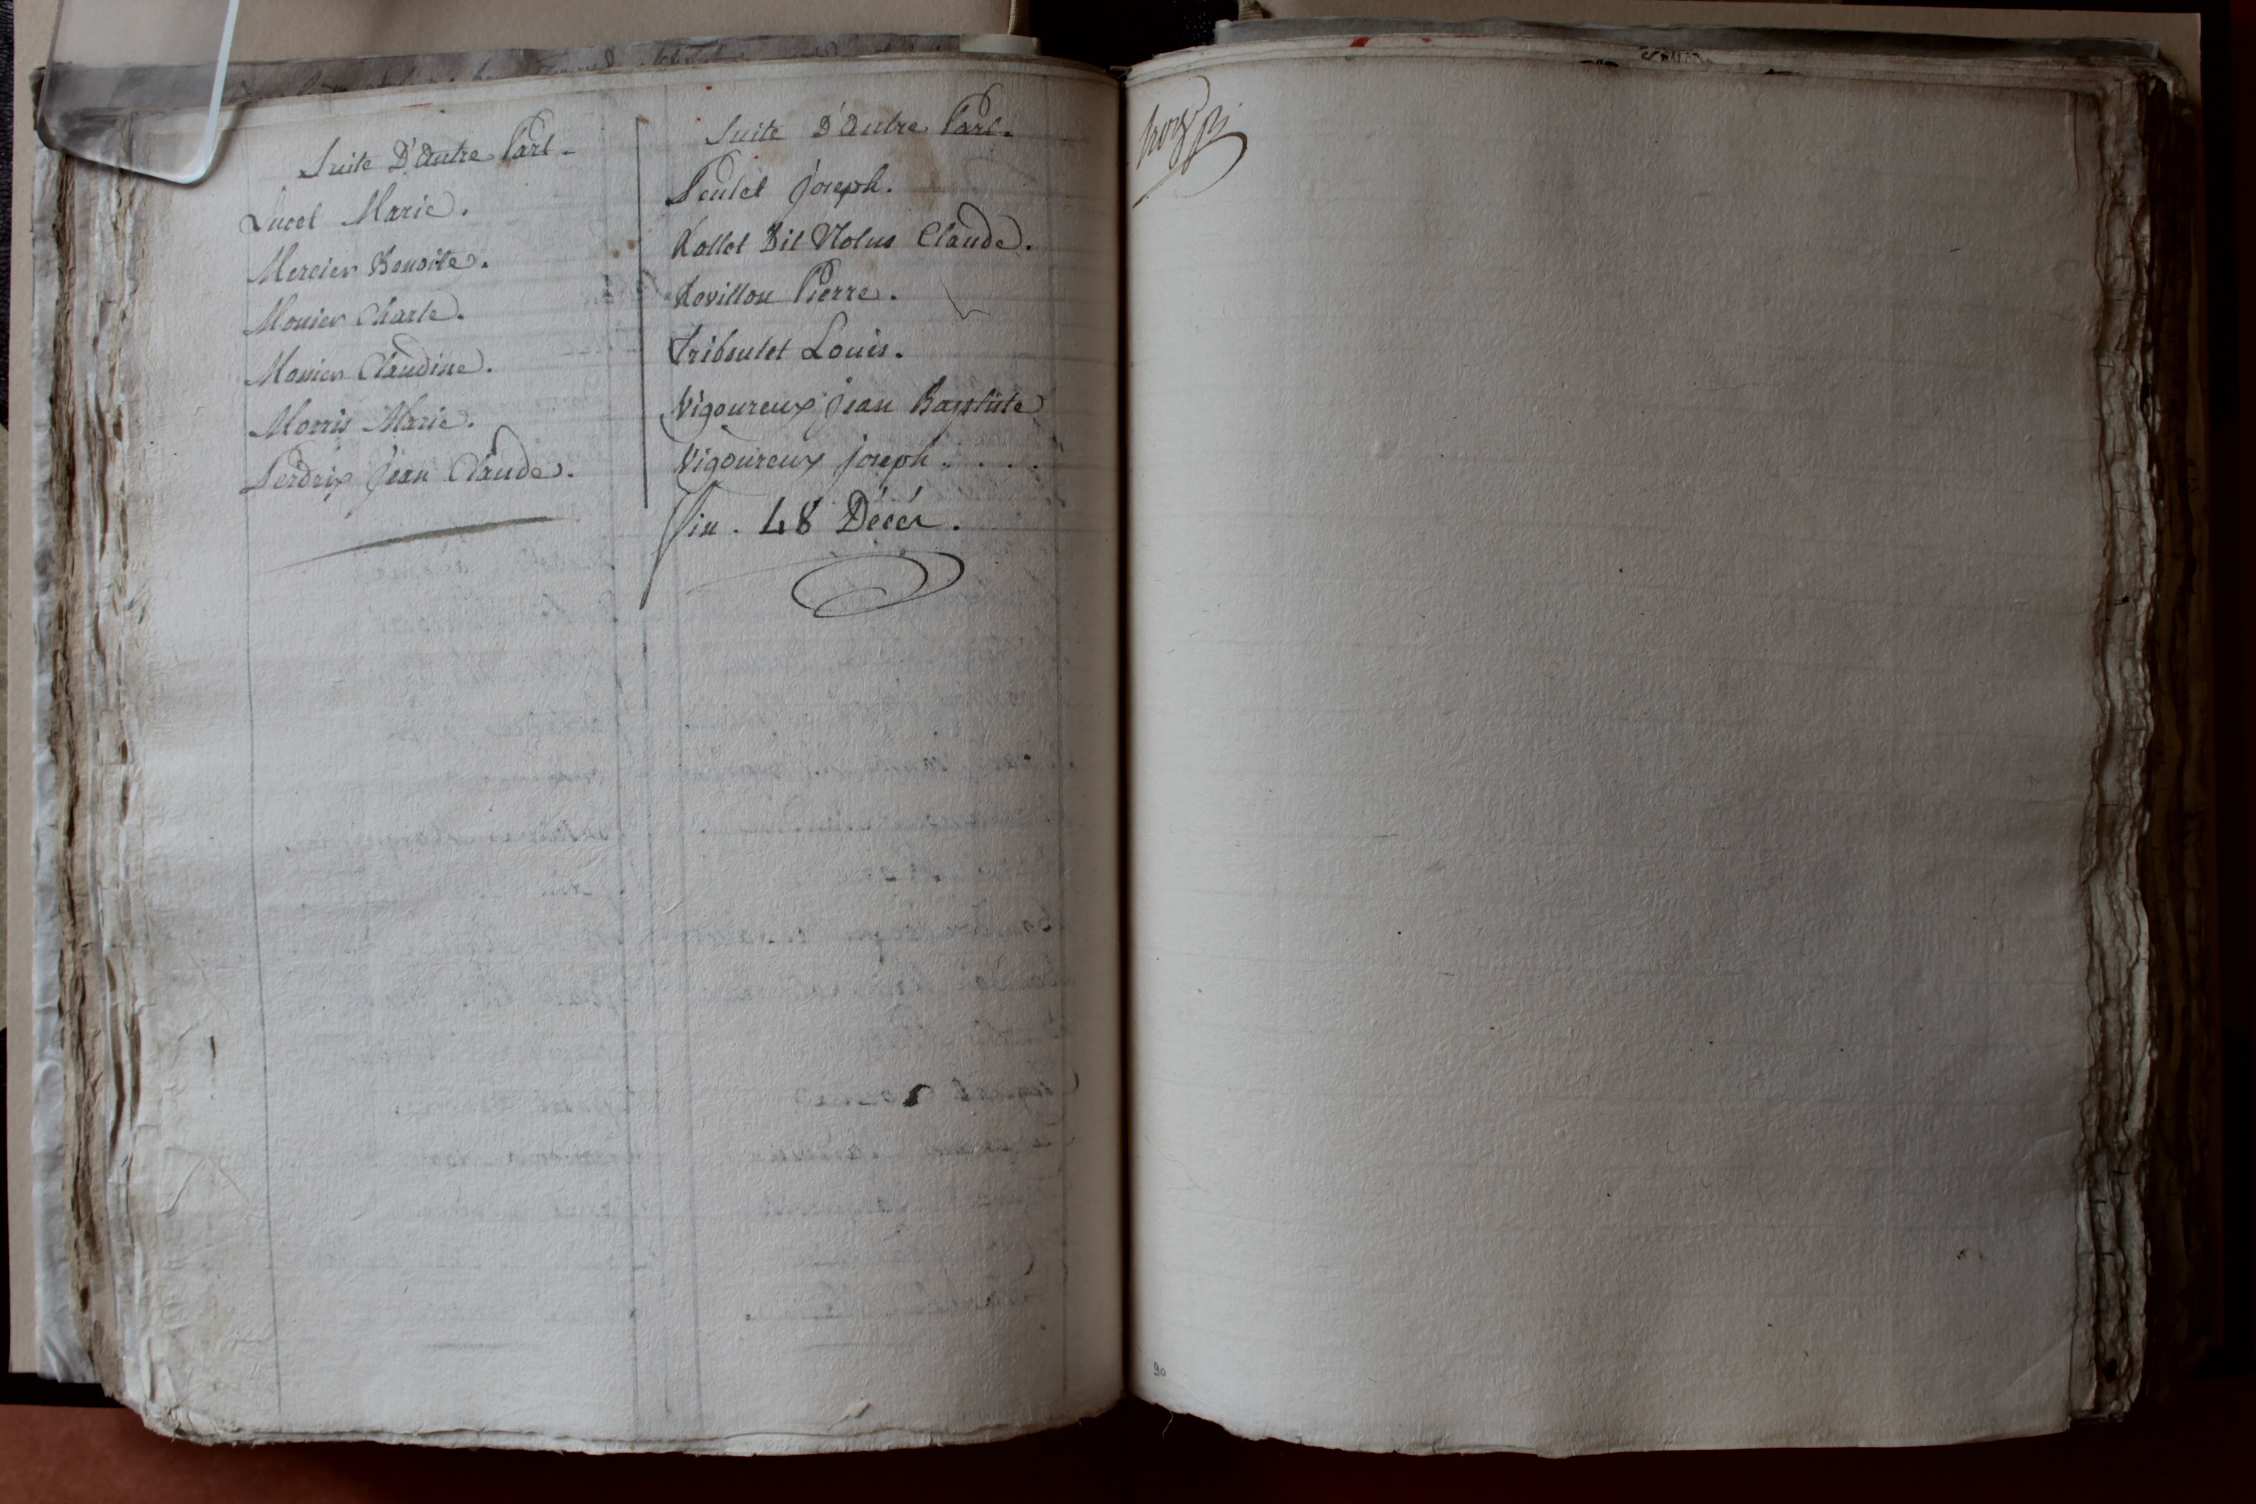 Suite D'autre Part.
Lucet Marie.
Mercier Benoite.
Monier Charle.
Monier Claudine.
Morris Marie.
Perdrix Jean Claude.
Suite D'autre Part.
Poulet Joseph.
Rollet Dit Nolus Claude.
Rovillon Pierre.
Triboulet Louis.
Vigoureux Jean Baptiste
Vigoureux Joseph . . . .
Fin. 48 Décés.
90